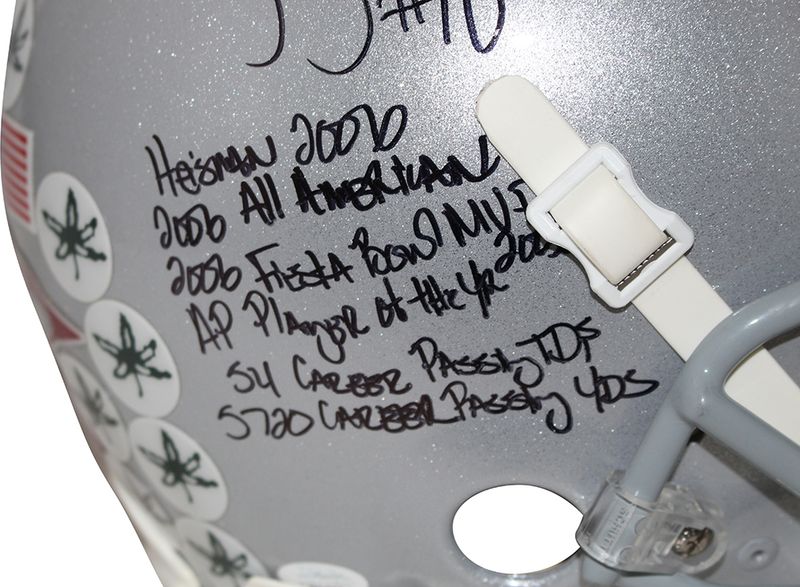 #10
Heisman 2006
2006 All American
2006 Fiesta Bowl MVP
AP Player of the Yr
54 Career Passing TDs
5720 Career Passing YDS